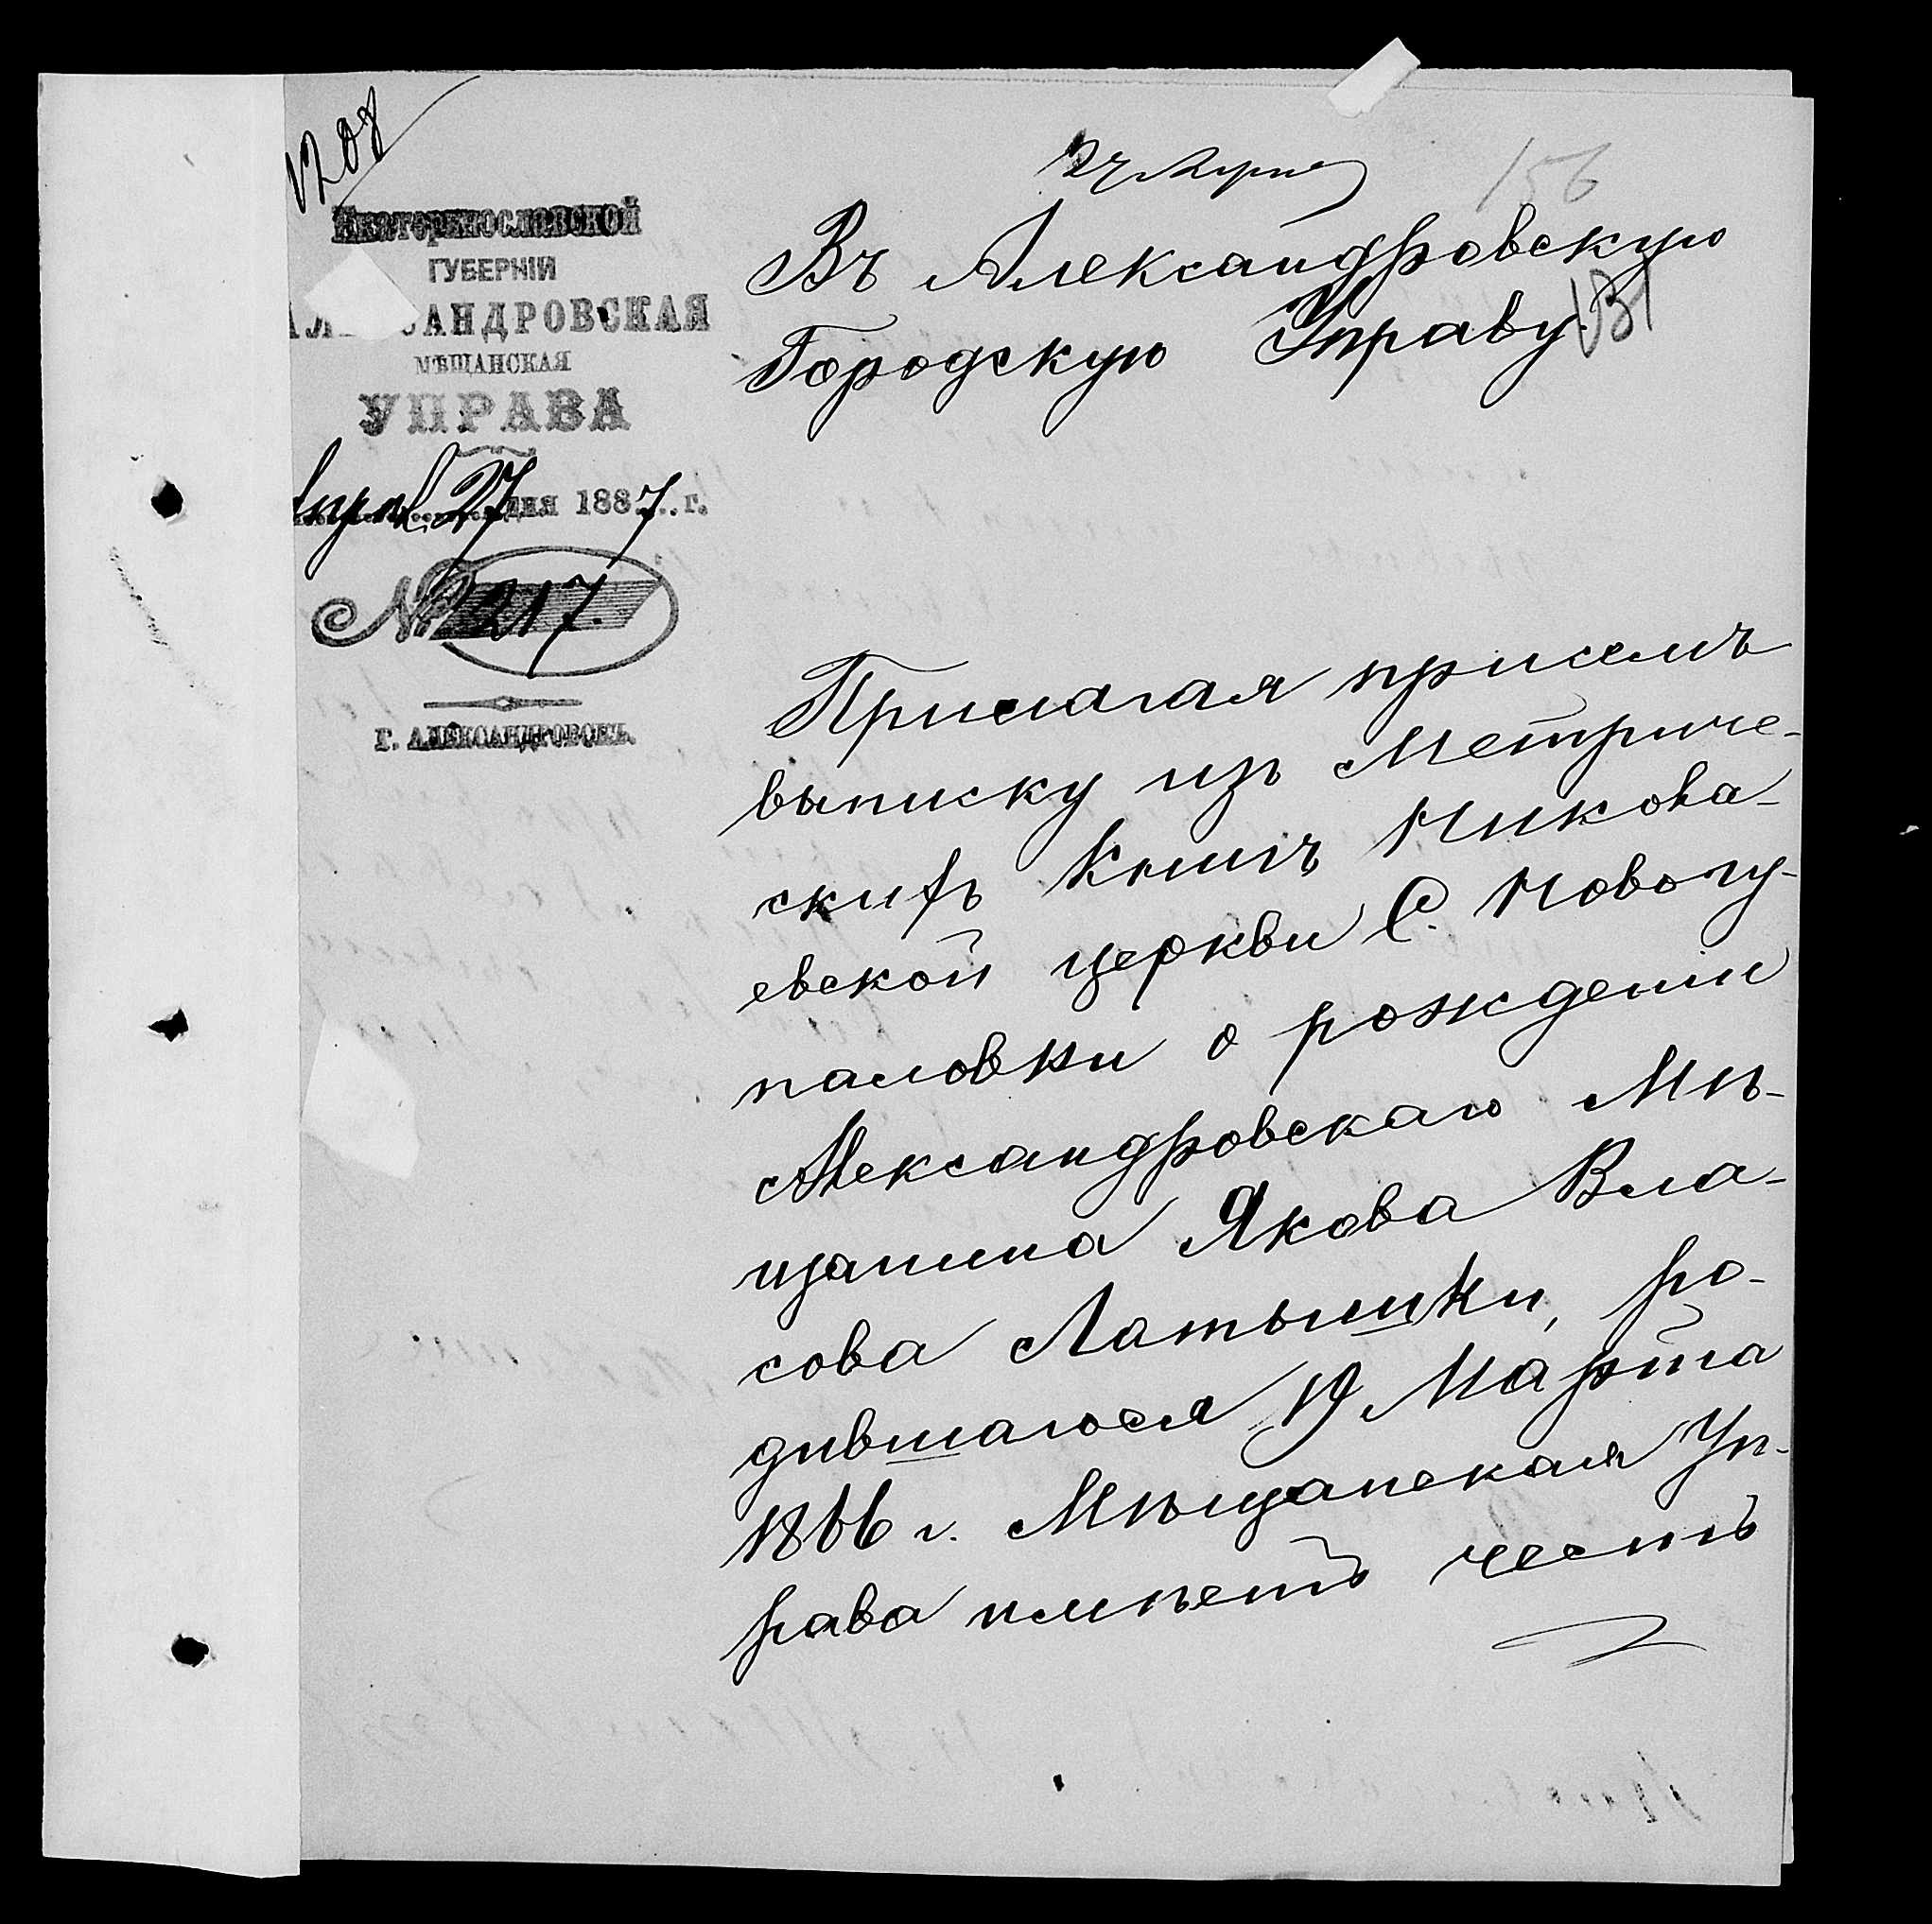 1208
156
Екатеринославской
ГУБЕРНІИ
АЛ САНДРОВСКАЯ
МѢЩАНСКАЯ
УПРАВА
27 дня 1887 г.
№ 217.
Г. АЛЕКСАНДРОВСКЪ.
Въ Александровскую
Городскую Управу
131
Прилагая присемъ
выписку изъ Метриче-
скихъ Книгъ Никола-
евской церкви С. Новогу-
паловки о рожденіи
Александровскаго Мѣ-
щанина Якова Вла-
сова Латышки, ро-
дившагося 19 Марта
1866 г. Мѣщанская Уп-
рава имѣетъ честь